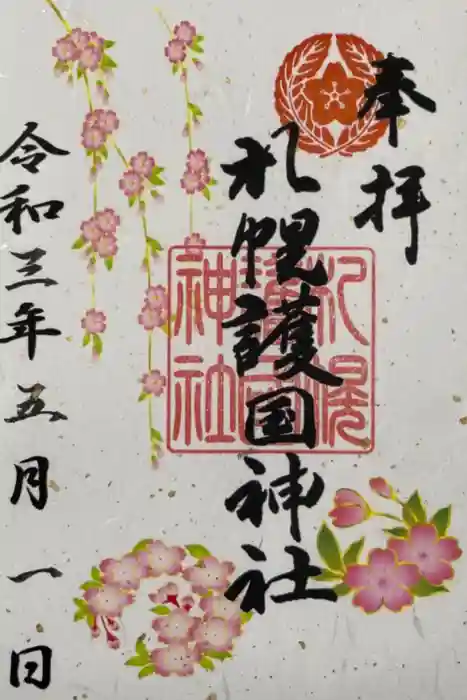 奉拝
札幌護国神社
札幌
護国
神社
令和三年五月一日